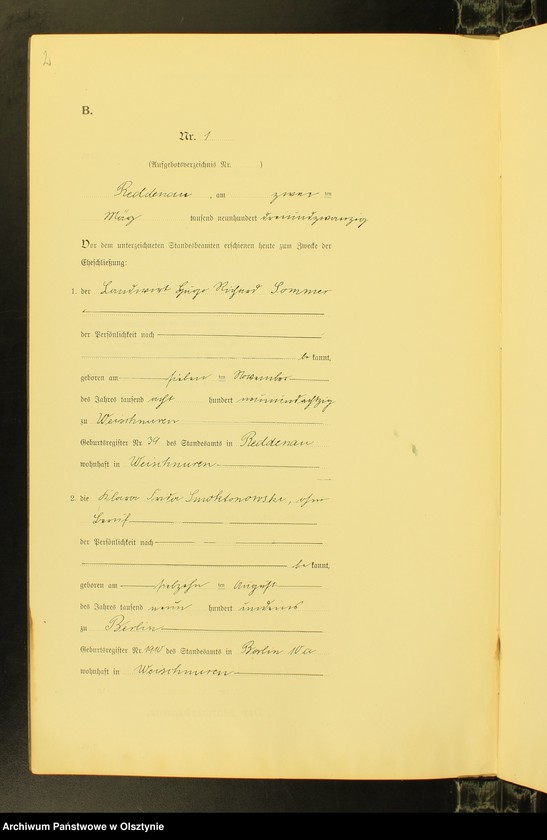 2
B.
Nr. 1
(Aufgebotsverzeichnis Nr. )
Reddenau, am zwei ten
März tausend neunhundert dreiundzwanzig
Vor dem unterzeichneten Standesbeamten erschienen heute zum Zwecke der
Eheschließung:
1. der Landwirt Hugo Richard Sommer
der Persönlichkeit nach
be kannt,
geboren am sieben ten November
des Jahres tausend acht hundert neunundachtzig
zu Weischnuren
Geburtsregister Nr. 39 des Standesamts in Reddenau
wohnhaft in Weischnuren
2. die Klara Smoktonowski, ohne
Beruf
der Persönlichkeit nach
be kannt,
geboren am ten August
des Jahres tausend neun hundert undeins
zu Berlin
Geburtsregister Nr. 1910 des Standesamts in Berlin 10a
wohnhaft in Weischnuren
Archiwum Państwowe w Olsztynie